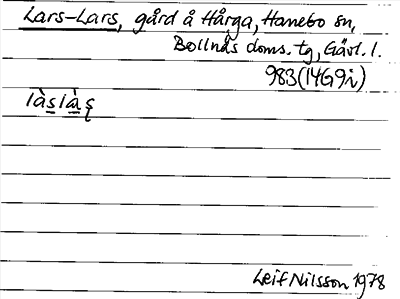 Lars-Lars, gård å Hårga, Hanebo sn,
Bollnäs doms. tg, Gävl. l.
983 (14G9i)
làslàs
Leif Nilsson 1978